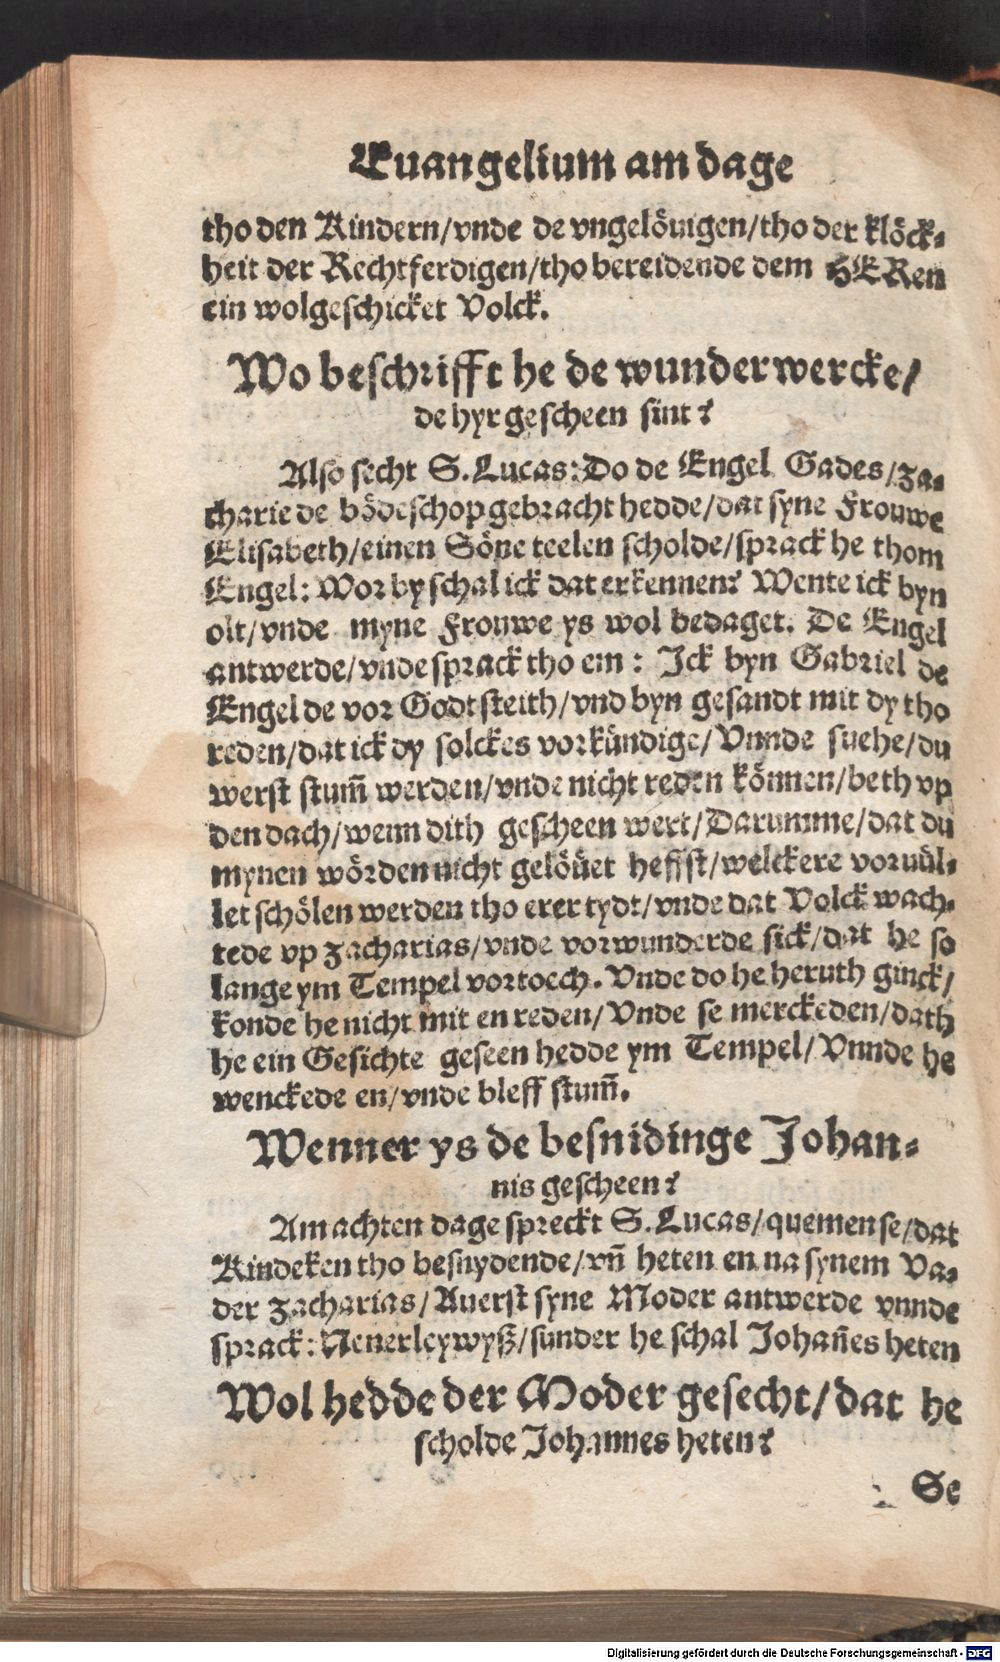 Euangelium am dage
tho den Kindern/vnde de vngelöuigen/tho der klöck⸗
heit der Rechtferdigen/tho bereidende dem HERen
ein wolgeschicket Volck.
Wo beschrifft he de wunderwercke/
de hyr gescheen sint?
Also secht S. Lucas: Do de Engel Gades/Za⸗
charie de bödeschop gebracht hedde/dat syne Frouwe
Elisabeth/einen Söne teelen scholde/sprack he thom
Engel: Wor by schal ick dat erkennen? Wente ick byn
olt/vnde myne Frouwe ys wol bedaget. De Engel
antwerde/vnde sprack tho em: Ick byn Gabriel de
Engel de vor Godt steith/vnd byn gesandt mit dy tho
reden/dat ick dy solckes vorkündige/Vnnde suehe/du
werst stum̃ werden/vnde nicht reden können/beth vp
den dach/wenn dith gescheen wert/Darumme/dat du
mynen wörden nicht gelöuet heffst/welckere voruül⸗
let schölen werden tho erer tydt/vnde dat Volck wach⸗
tede vp Zacharias/vnde vorwunderde sick/dat he so
lange ym Tempel vortoech. Vnde do he heruth ginck/
konde he nicht mit en reden/Vnde se merckeden/dath
he ein Gesichte geseen hedde ym Tempel/Vnnde he
wenckede en/vnde bleff stum̃.
Wenner ys de besnidinge Johan⸗
nis gescheen?
Am achten dage spreckt S. Lucas/quemen se/dat
Kindeken tho besnydende/vñ heten en na synem Va⸗
der Zacharias/Auerst syne Moder antwerde vnnde
sprack: Nenerleywyß/sunder he schal Johañes heten
Wol hedde der Moder gesecht/dat he
scholde Johannes heten?
Se
Digitalisierung gefördert durch die Deutsche Forschungsgemeinschaft - DFG